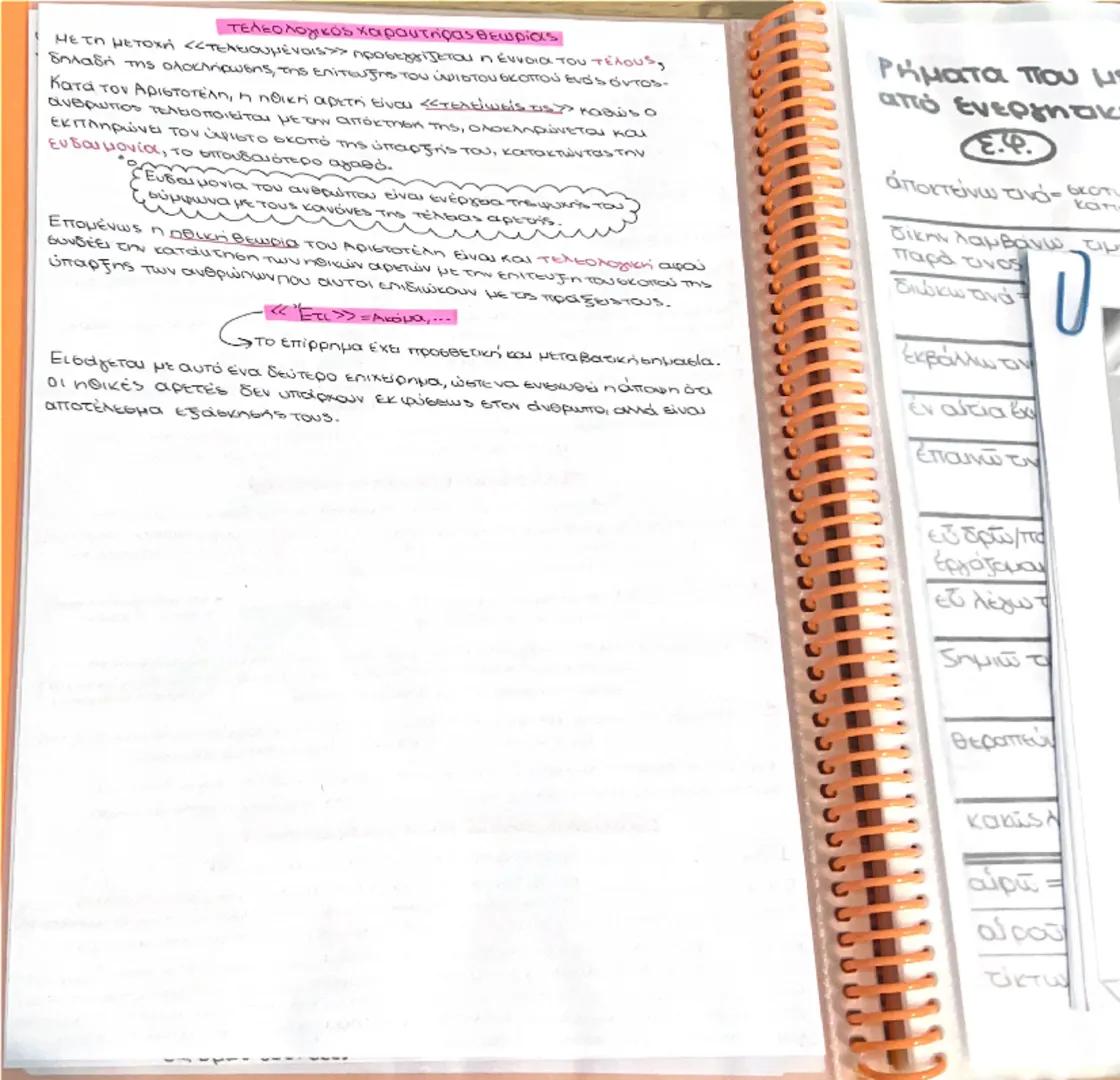 τελεολογικός χαρακτήρας θεωρίας
Με τη μετοχή <<τελειουμένοις>> προσεγγίζεται η έννοια του τέλους,
δηλαδή της ολοκλήρωσης, της επίτευξης του ύψιστου σκοπού ενός όντος.
Κατά τον Αριστοτέλη, η ηθική αρετή είναι <<τελείωσις τις>> καθώς ο
άνθρωπος τελειοποιείται με την απόκτησή της, ολοκληρώνεται και
εκπληρώνει τον ύψιστο σκοπό της ύπαρξής του, κατακτώντας την
ευδαιμονία, το σπουδαιότερο αγαθό.
Ευδαιμονία του ανθρώπου είναι ενέργεια της ψυχής του
σύμφωνα με τους κανόνες της τέλειας αρετής.
Επομένως η ηθική θεωρία του Αριστοτέλη είναι και τελεολογική αφού
συνδέει την κατάκτηση των ηθικών αρετών με την επίτευξη του σκοπού της
ύπαρξης των ανθρώπων που αυτοί επιδιώκουν με τις πράξεις τους.
<< Ἔτι >> = Ακόμα,...
Το επίρρημα έχει προσθετική και μεταβατική σημασία.
Εισάγεται με αυτό ένα δεύτερο επιχείρημα, ώστε να ενισχυθεί η άποψη ότι
οι ηθικές αρετές δεν υπάρχουν εκ φύσεως στον άνθρωπο, αλλά είναι
αποτέλεσμα εξάσκησής τους.
Ρήματα που
από ενεργητικ
Ε.Φ.
ἀποκτείνω τινά=
δίκην λαμβάνω
παρά τινος
διώκω τινά =
ἐκβάλλω
ἐν αἰτίᾳ
ἐπαινῶ
εὖ δρῶ/
ἐργάζομαι
εὖ λέγω
ζημιῶ
θεραπεύω
κακῶς λ
αἱρῶ =
τίκτω